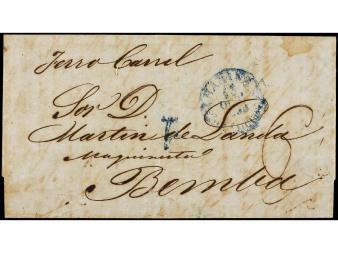 Ferro Carril
Sor. D
Martin de Landa
Maquinista
Bemba